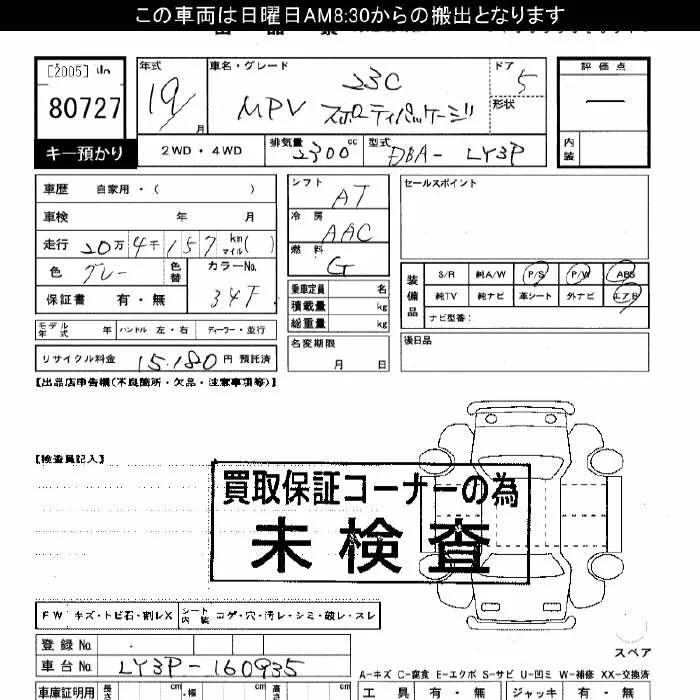 この車両は日曜日AM8:30からの搬出となります
[2005]
80727
キー預かり
年式
19
月
車名・グレード
23C
MPV スポーティパッケージ
ドア
5
形状
評価点
―
内装
2WD・4WD
排気量
2300cc
型式
DBA- LY3P
車歴 自家用・( )
車検 年 月
走行 20万4千157km マイル( )
色 グレー
色替
カラーNo.
34F
保証書 有・無
シフト
AT
冷房
AAC
燃料
G
乗車定員 名
積載量 kg
総重量 kg
セールスポイント
装備品
S/R 純A/W P/S P/W ABS
純TV 純ナビ 革シート 外ナビ エアB
ナビ型番:
モデル年式 年 ハンドル 左・右 ディーラー・並行
リサイクル料金 15,180円 預託済
名変期限
月 日
後日品
【出品店申告欄(不良箇所・欠品・注意事項等)】
【検査員記入】
買取保証コーナーの為
未検査
FW キズ・トビ石・割レX シート内装 コゲ・穴・汚レ・シミ・破レ・スレ
スペア
登録No.
車台No. LY3P-160935
A-キズ C-腐食 E-エクボ S-サビ U-凹ミ W-補修 XX-交換済
車庫証明用 長さ cm 幅 cm 高さ cm
工具 有・無 ジャッキ 有・無